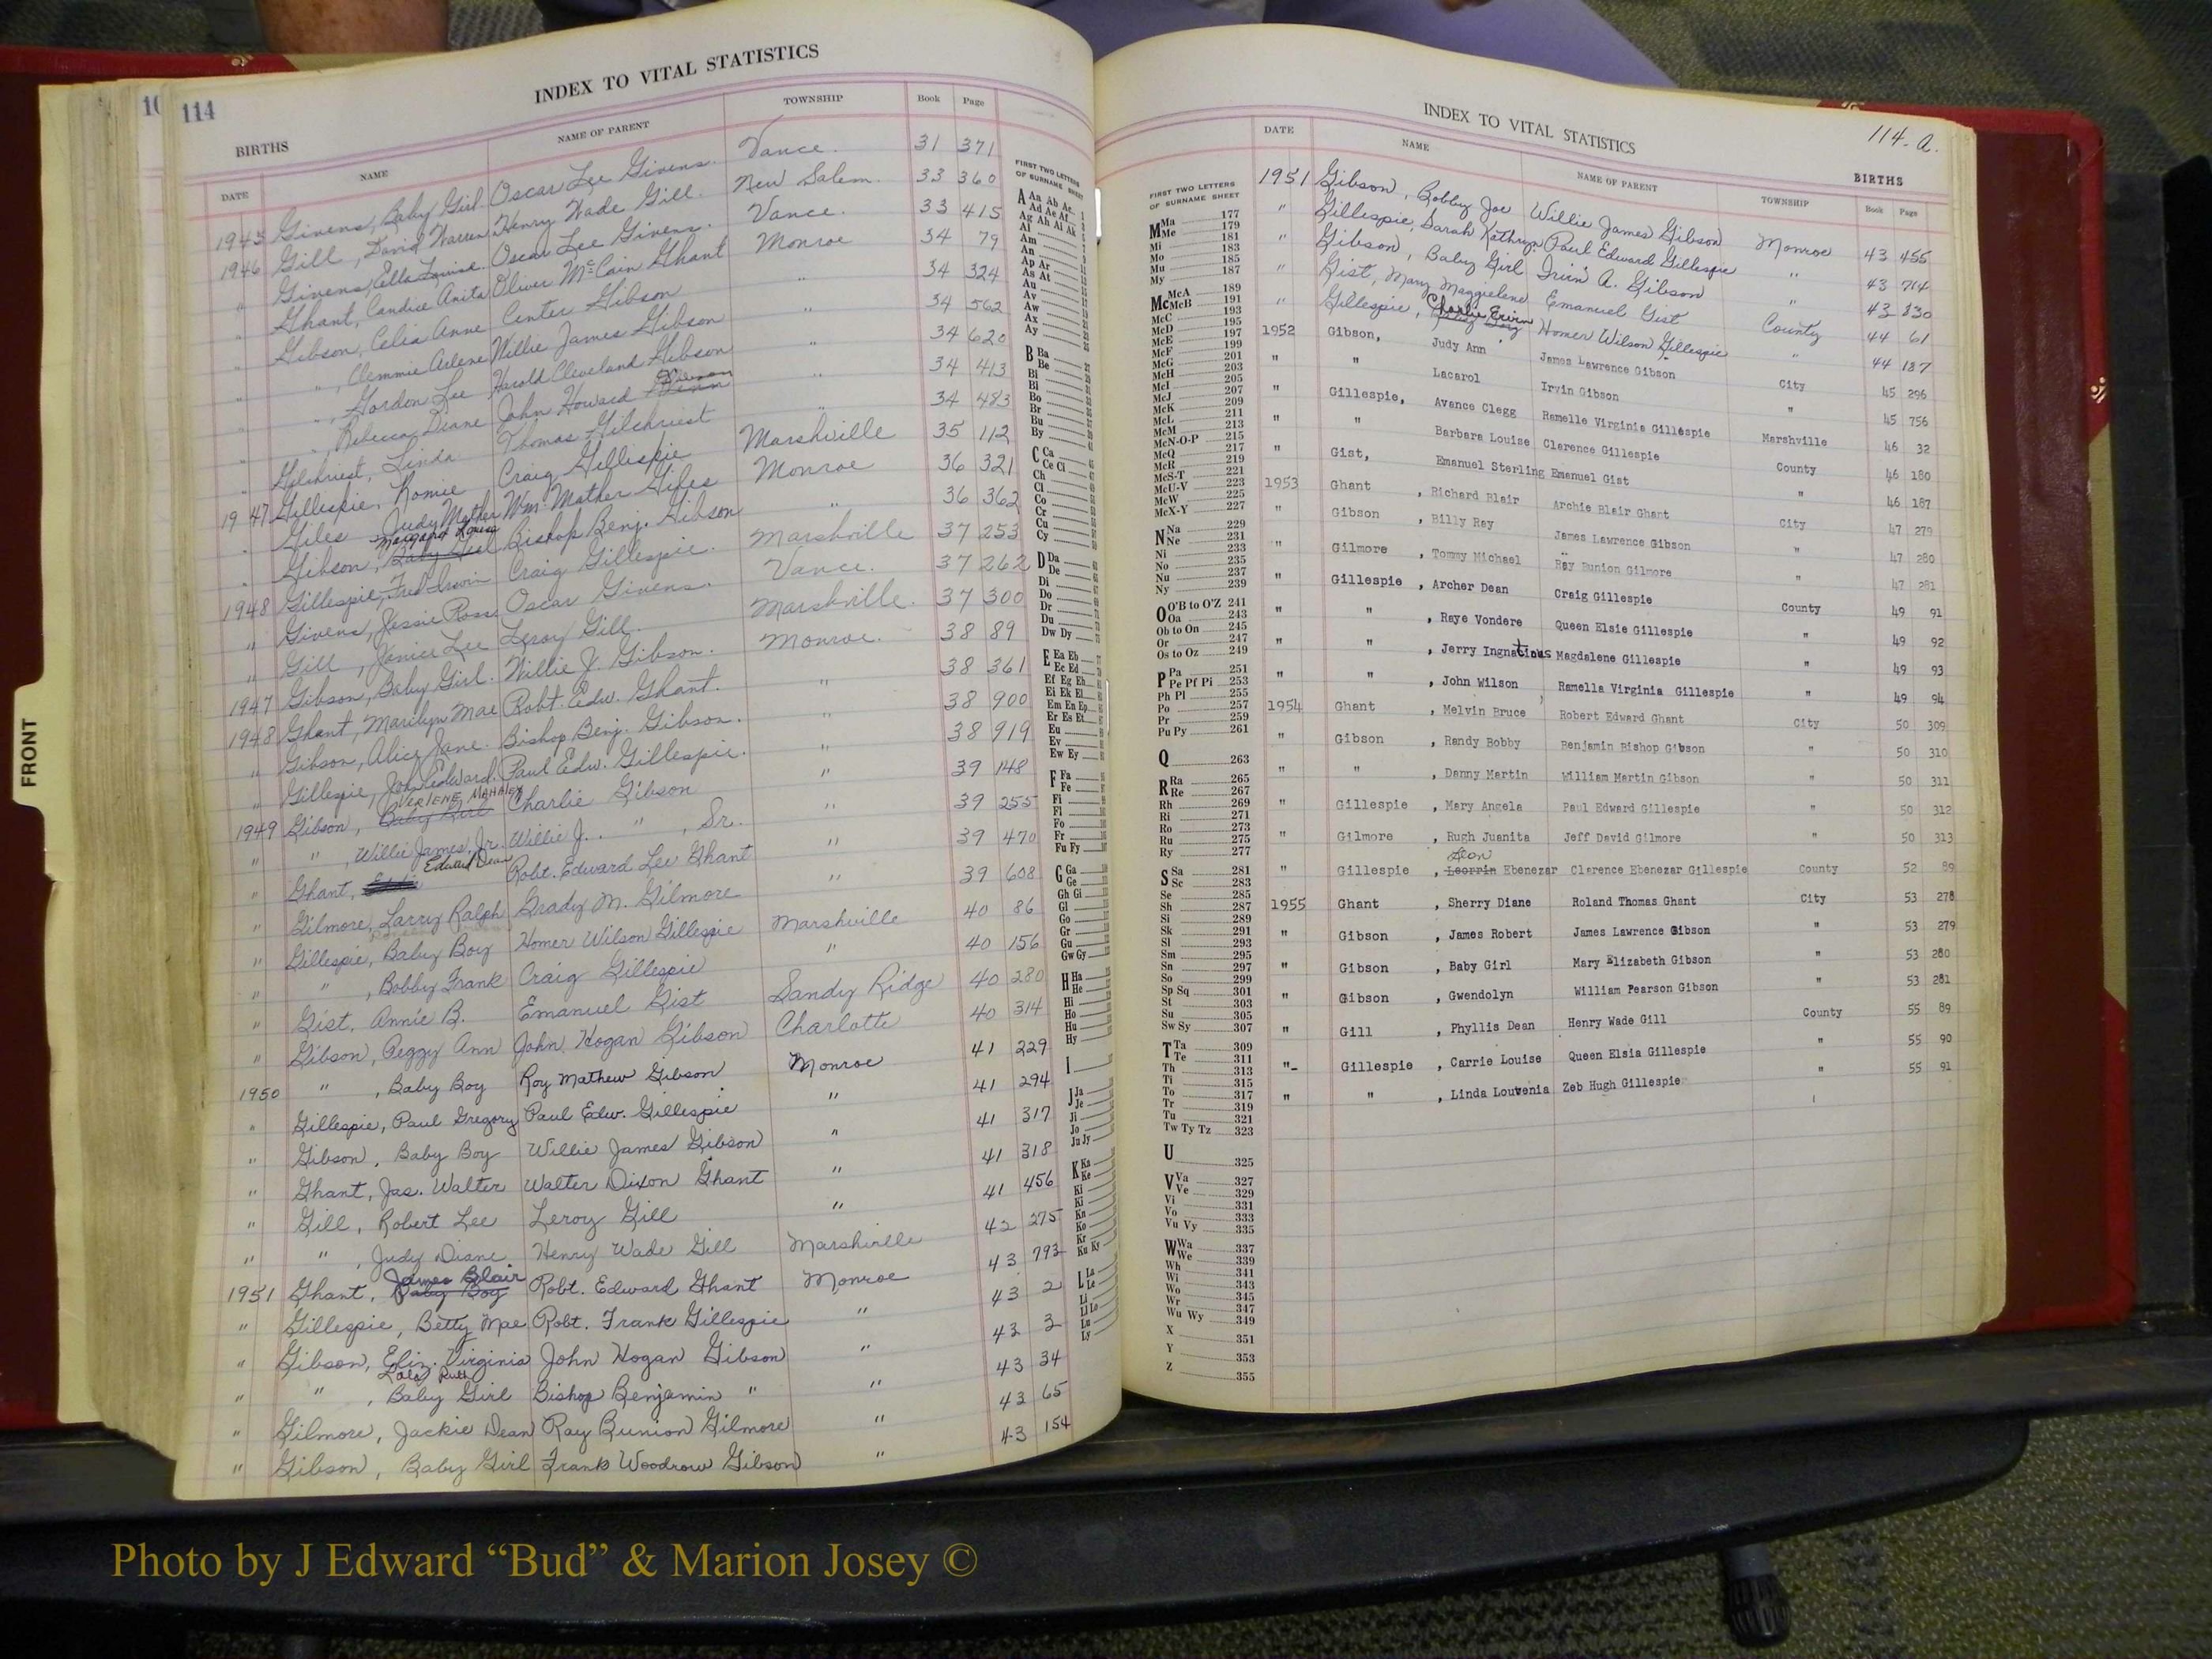 INDEX TO VITAL STATISTICS
114
BIRTHS
DATE NAME NAME OF PARENT TOWNSHIP Book Page
1945 Givens, Baby Girl Oscar Lee Givens. Vance. 31 371
1946 Gill, David Warren Henry Wade Gill. New Salem. 33 360
" Givens, Ella Louise. Oscar Lee Givens. Vance. 33 415
" Ghant, Candice Anita Oliver McCain Ghant Monroe 34 79
" Gibson, Celia Anne Center Gibson " 34 324
" ", Clemmie Arlene Willie James Gibson " 34 562
" ", Gordon Lee Harold Cleveland Gibson " 34 620
" ", Rebecca Diane John Howard Gibson " 34 413
" Gilchriest, Linda Thomas Gilchriest " 34 483
1947 Gillespie, Romie Craig Gillespie Marshville 35 112
" Giles Judy Mather Wm. Mather Giles Monroe 36 321
" Gibson, Margaret Louise Baby Girl Bishop Benj. Gibson " 36 362
1948 Gillespie, Fred Irwin Craig Gillespie. Marshville 37 253
" Givens, Jessie Ross Oscar Givens. Vance. 37 262
" Gill, Janice Lee Leroy Gill. Marshville. 37 300
1947 Gibson, Baby Girl. Willie J. Gibson. Monroe. 38 89
1948 Ghant, Marilyn Mae Robt. Edw. Ghant. " 38 361
" Gibson, Alice Jane. Bishop Benj. Gibson. " 38 900
" Gillespie, John Edward. Paul Edw. Gillespie. " 38 919
1949 Gibson, VERLENE MAHALEY Baby Girl Charlie Gibson " 39 148
" ", Willie James, Jr. Willie J. ", Sr. " 39 255
" Ghant, Edward Dean Robt. Edward Lee Ghant " 39 470
" Gilmore, Larry Ralph Grady M. Gilmore " 39 608
" Gillespie, Baby Boy Homer Wilson Gillespie Marshville 40 86
" ", Bobby Frank Craig Gillespie " 40 156
" Gist, Annie B. Emanuel Gist Sandy Ridge 40 280
" Gibson, Peggy Ann John Hogan Gibson Charlotte 40 314
1950 ", Baby Boy Roy Mathew Gibson Monroe 41 229
" Gillespie, Paul Gregory Paul Edw. Gillespie " 41 294
" Gibson, Baby Boy Willie James Gibson " 41 317
" Ghant, Jas. Walter Walter Dixon Ghant " 41 318
" Gill, Robert Lee Leroy Gill " 41 456
" ", Judy Diane Henry Wade Gill Marshville 42 275
1951 Ghant, James Blair Baby Boy Robt. Edward Ghant Monroe 43 793
" Gillespie, Betty Mae Robt. Frank Gillespie " 43 2
" Gibson, Eliz. Virginia John Hogan Gibson " 43 3
" ", Lola Ruth Baby Girl Bishop Benjamin " " 43 34
" Gilmore, Jackie Dean Ray Bunion Gilmore " 43 65
" Gibson, Baby Girl Frank Woodrow Gibson " 43 154
FIRST TWO LETTERS
OF SURNAME SHEET
FRONT
INDEX TO VITAL STATISTICS
114-a.
BIRTHS
DATE NAME NAME OF PARENT TOWNSHIP Book Page
1951 Gibson, Bobby Joe Willie James Gibson Monroe 43 455
" Gillespie, Sarah Kathryn Paul Edward Gillespie " 43 714
" Gibson, Baby Girl Irvin A. Gibson " 43 830
" Gist, Mary Maggielene Emanuel Gist County 44 61
" Gillespie, Charlie Ervin Baby Boy Homer Wilson Gillespie " 44 187
1952 Gibson, Judy Ann James Lawrence Gibson City 45 296
" " Lacarol Irvin Gibson " 45 756
" Gillespie, Avance Clegg Ramelle Virginia Gillespie Marshville 46 32
" " Barbara Louise Clarence Gillespie County 46 180
" Gist, Emanuel Sterling Emanuel Gist " 46 187
1953 Ghant, Richard Blair Archie Blair Ghant City 47 279
" Gibson, Billy Ray James Lawrence Gibson " 47 280
" Gilmore, Tommy Michael Ray Bunion Gilmore " 47 281
" Gillespie, Archer Dean Craig Gillespie County 49 91
" ", Raye Vondere Queen Elsie Gillespie " 49 92
" ", Jerry Ingnatious Magdalene Gillespie " 49 93
" ", John Wilson Ramella Virginia Gillespie " 49 94
1954 Ghant, Melvin Bruce Robert Edward Ghant City 50 309
" Gibson, Randy Bobby Benjamin Bishop Gibson " 50 310
" ", Danny Martin William Martin Gibson " 50 311
" Gillespie, Mary Angela Paul Edward Gillespie " 50 312
" Gilmore, Rugh Juanita Jeff David Gilmore " 50 313
" Gillespie, Leon Leorrin Ebenezar Clarence Ebenezar Gillespie County 52 89
1955 Ghant, Sherry Diane Roland Thomas Ghant City 53 278
" Gibson, James Robert James Lawrence Gibson " 53 279
" Gibson, Baby Girl Mary Elizabeth Gibson " 53 280
" Gibson, Gwendolyn William Pearson Gibson " 53 281
" Gill, Phyllis Dean Henry Wade Gill County 55 89
"- Gillespie, Carrie Louise Queen Elsia Gillespie " 55 90
" ", Linda Louvenia Zeb Hugh Gillespie " 55 91
FIRST TWO LETTERS
OF SURNAME SHEET
M Ma 177
Me 179
Mi 181
Mo 183
Mu 185
My 187
Mc McA 189
McB 191
McC 193
McD 195
McE 197
McF 199
McG 201
McH 203
McI 205
McJ 207
McK 209
McL 211
McM 213
McN-O-P 215
McQ 217
McR 219
McS-T 221
McU-V 223
McW 225
McX-Y 227
N Na 229
Ne 231
Ni 233
No 235
Nu 237
Ny 239
O O'B to O'Z 241
Oa 243
Ob to On 245
Or 247
Os to Oz 249
P Pa 251
Pe Pf Pi 253
Ph Pl 255
Po 257
Pr 259
Pu Py 261
Q 263
R Ra 265
Re 267
Rh 269
Ri 271
Ro 273
Ru 275
Ry 277
S Sa 281
Sc 283
Se 285
Sh 287
Si 289
Sk 291
Sl 293
Sm 295
Sn 297
So 299
Sp Sq 301
St 303
Su 305
Sw Sy 307
T Ta 309
Te 311
Th 313
Ti 315
To 317
Tr 319
Tu 321
Tw Ty Tz 323
U 325
V Va 327
Ve 329
Vi 331
Vo 333
Vu Vy 335
W Wa 337
We 339
Wh 341
Wi 343
Wo 345
Wr 347
Wu Wy 349
X 351
Y 353
Z 355
Photo by J Edward “Bud” & Marion Josey ©